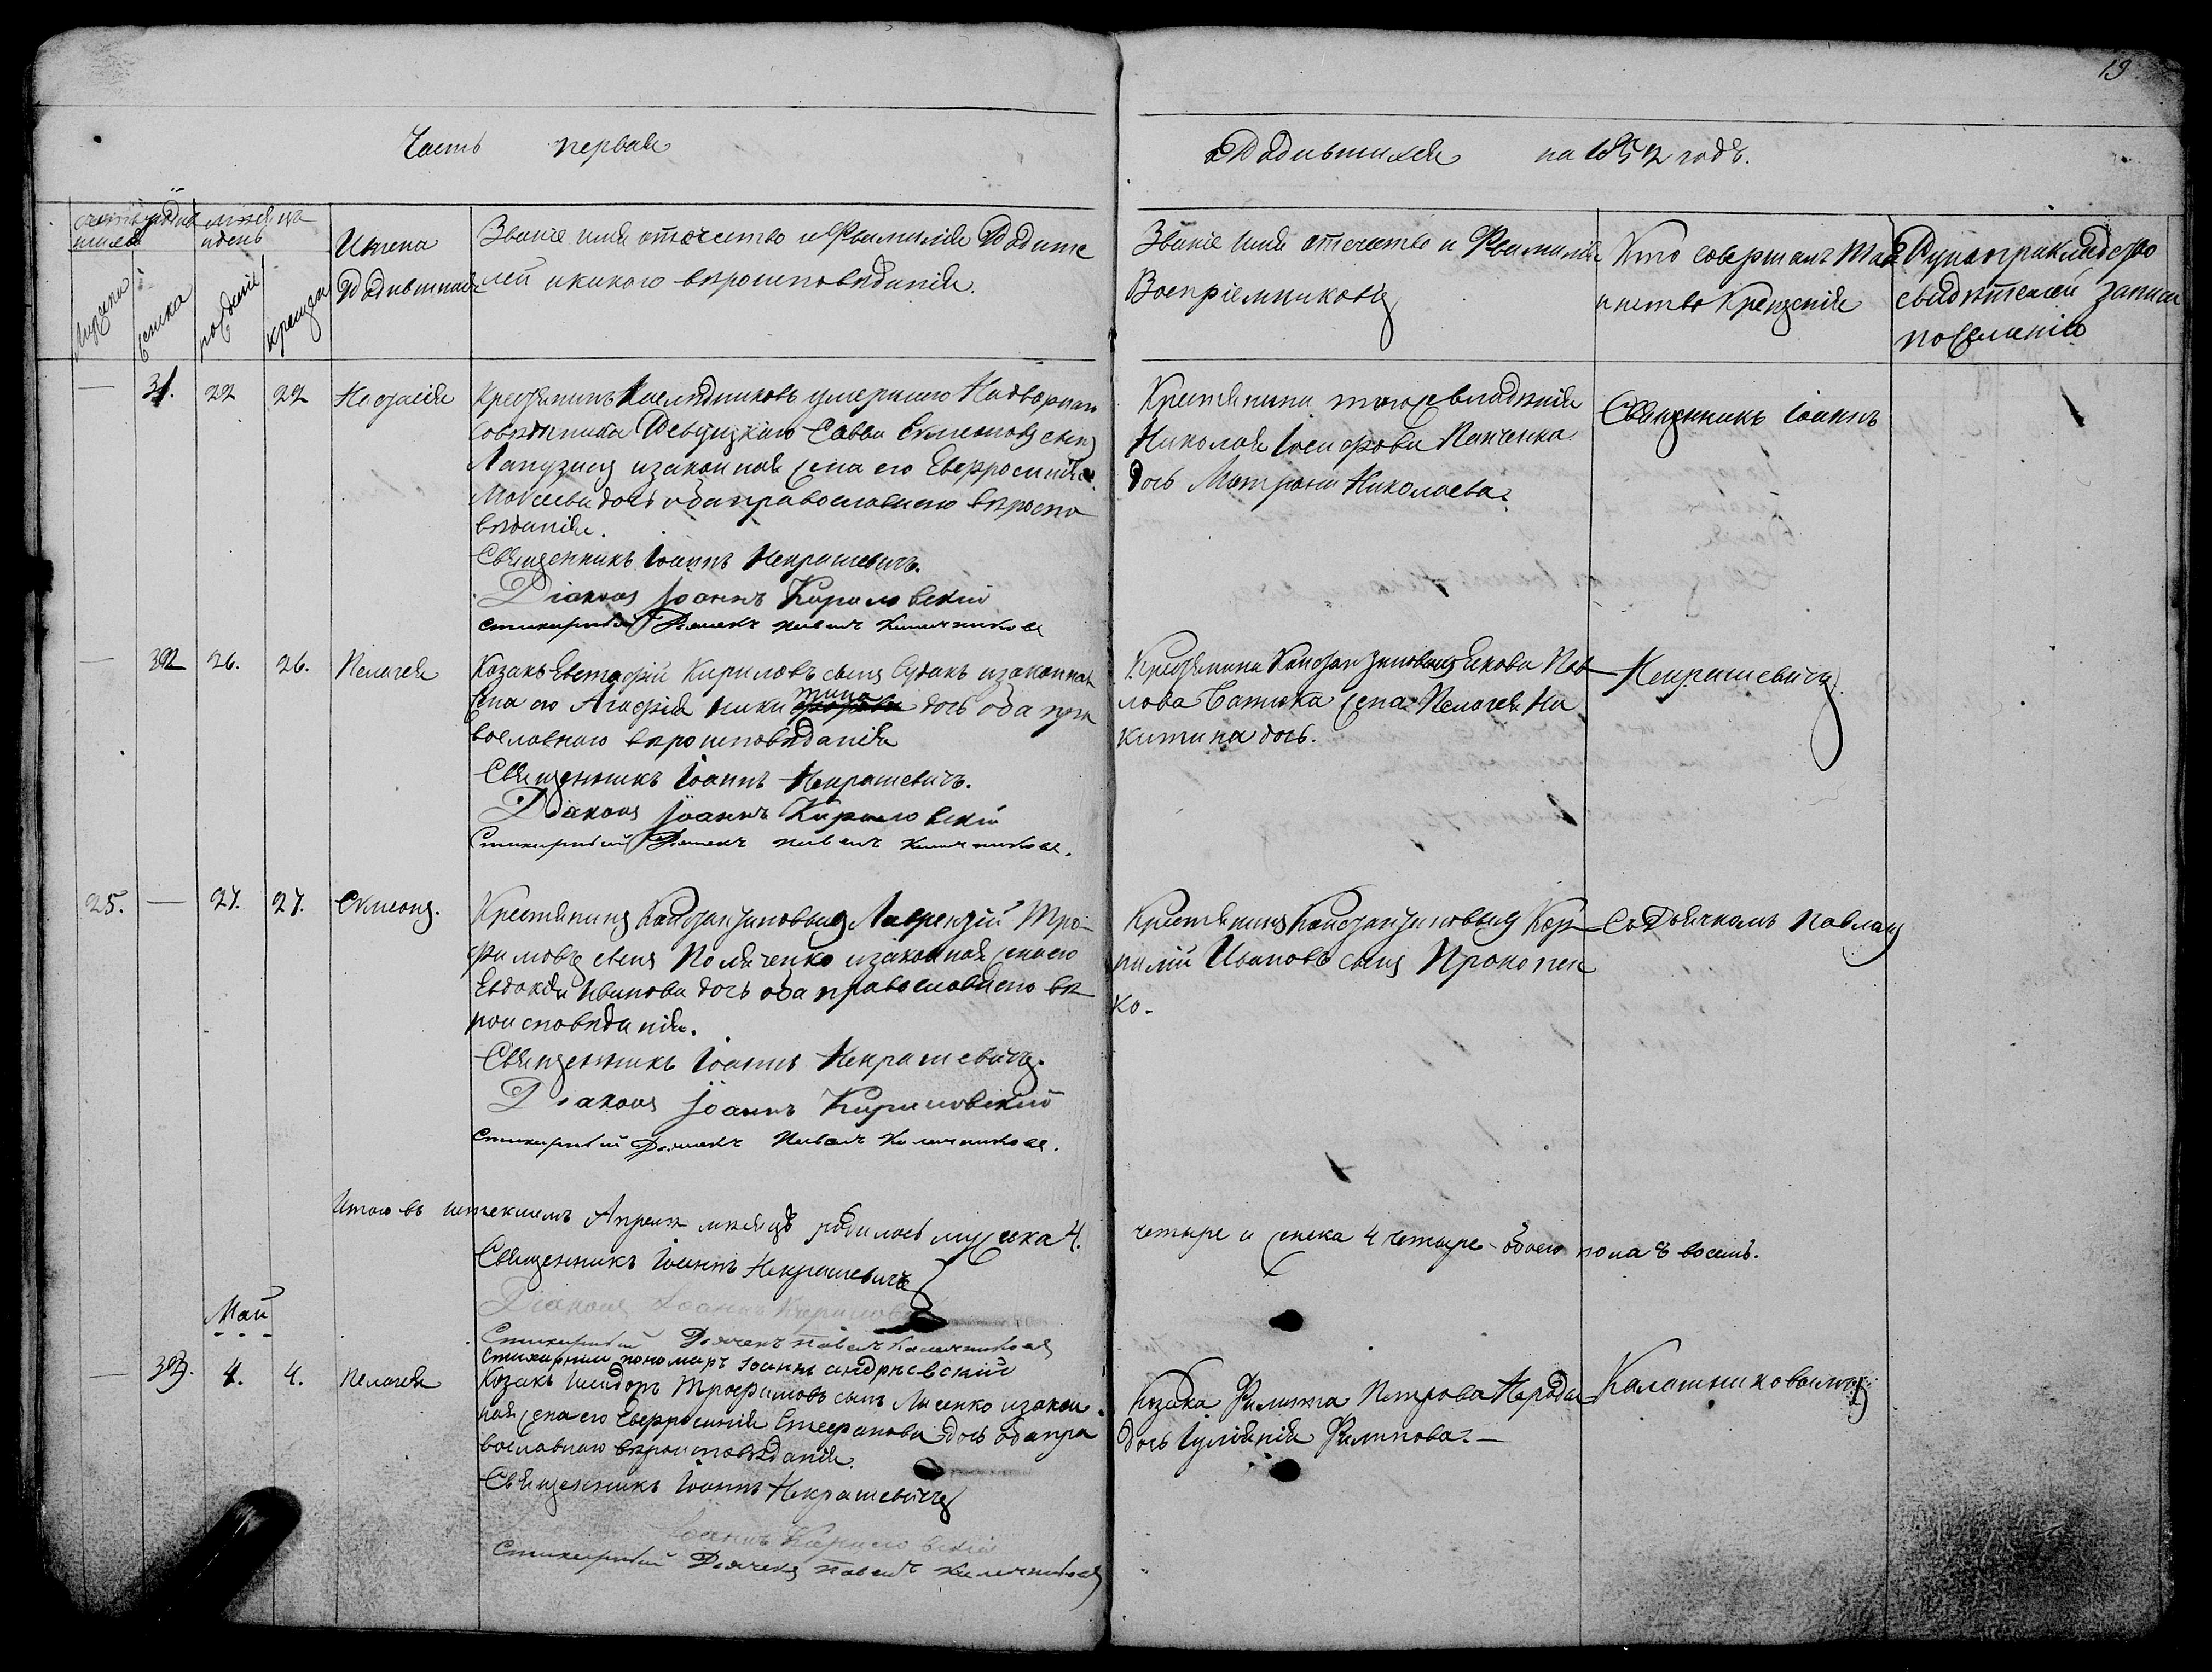 19
Часть первая
о Родившихся на 1852 годъ.
счетъ родив
шихся
мѣсяцъ
и день
Имена
Родившихся
Званіе имя отчество и Фамилія Родите
лей и какого вѣроисповѣданія.
Мужеска
женска
рожденія
крещенія
Званіе имя отчество и Фамилія
Воспріемниковъ
Кто совершалъ Таи
инство Крещенія
Рукоприкладство
свидѣтелей записи
по желанію
— 31. 22 22
Крестьянинъ Наслѣдниковъ умершаго Надворнаго
Совѣтника Савва Симеоновъ сынъ
и законная жена его Евфросинія
Моѵсеева дочь оба православнаго вѣроиспо
вѣданія.
Священникъ Іоаннъ Некрашевичъ.
Діаконъ Іоаннъ Кириловскій
Стихарный Дьячекъ Павелъ Калашниковъ
Крестьянина того же владѣнія
Николая Іосифова Панченка
дочь Матрона Николаева.
Священникъ Іоаннъ
— 32 26. 26. Пелагея
Козакъ Евстафій Кириловъ сынъ Судакъ и законная
жена его Агафія Ники тина дочь оба пра
вославнаго вѣроисповѣданія
Священникъ Іоаннъ Некрашевичъ.
Діаконъ Іоаннъ Кириловскій
Стихарный Дьячекъ Павелъ Калашниковъ.
Крестьянина Якова Пав
лова жена Пелагея Ни
китина дочь.
Некрашевичъ
25. — 27. 27. Симеонъ.
Крестьянинъ Лаврентій Тро
фимовъ сынъ Поляченко и законная жена его
Евдокія Иванова дочь оба православнаго вѣ
роисповѣданія.
Священникъ Іоаннъ Некрашевичъ.
Діаконъ Іоаннъ Кириловскій
Стихарный Дьячекъ Павелъ Калашниковъ.
Крестьянинъ Кор
нилій Ивановъ сынъ Прокопен
ко.
Съ Дьячкомъ Павломъ
Итого въ истекшемъ Апрелѣ мѣсяцѣ родилось мужеска 4.
четыре и женска 4 четыре обоего пола 8 восемь.
Священникъ Іоаннъ Некрашевичъ
Діаконъ Іоаннъ Кириловскій
Стихарный Дьячекъ Павелъ Калашниковъ
Стихарный пономарь Іоаннъ Андріевскій
Май
— 33. 4. 4. Пелагея
Козакъ Исидоръ Трофимовъ сынъ Лысенко и закон
ная жена его Евфросинія Стефанова дочь оба пра
вославнаго вѣроисповѣданія.
Священникъ Іоаннъ Некрашевичъ
Іоаннъ Кириловскій
Стихарный Дьячекъ Павелъ Калашниковъ
Козака Филиппа Петрова
дочь Іуліянія Филипова.—
Калашниковымъ